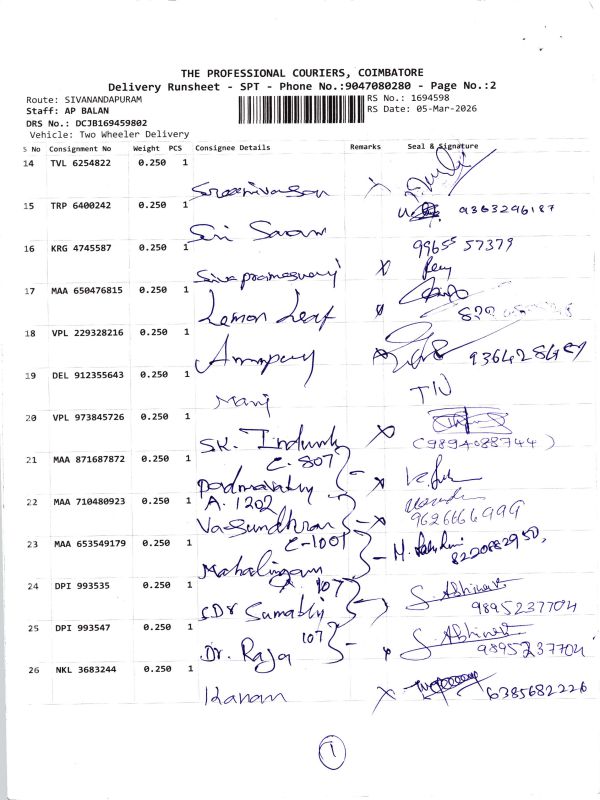 THE PROFESSIONAL COURIERS, COIMBATORE
Delivery Runsheet - SPT - Phone No.:9047080280 - Page No.:2
Route: SIVANANDAPURAM
RS No.: 1694598
Staff: AP BALAN
RS Date: 05-Mar-2026
DRS No.: DCJB169459802
Vehicle: Two Wheeler Delivery
S No Consignment No Weight PCS Consignee Details Remarks Seal & Signature
14 TVL 6254822 0.250 1
Sreenivasan
15 TRP 6400242 0.250 1
9363296187
Sri Saram
16 KRG 4745587 0.250 1
99655 57379
Sivaprameswari
17 MAA 650476815 0.250 1
Lemon Leaf
18 VPL 229328216 0.250 1
19 DEL 912355643 0.250 1
Mani
20 VPL 973845726 0.250 1
SK. (9894088744)
21 MAA 871687872 0.250 1
C. 807
Padmavathy
22 MAA 710480923 0.250 1
A. 1202
Vasundhran 9626666999
23 MAA 653549179 0.250 1
C-1001
Mahalingam 8220882950,
24 DPI 993535 0.250 1
107
Dr Sumathy S. Abhinav
9895237704
25 DPI 993547 0.250 1
107
Dr. Raja S. Abhinav
9895237704
26 NKL 3683244 0.250 1
Kanam 6385682226
1